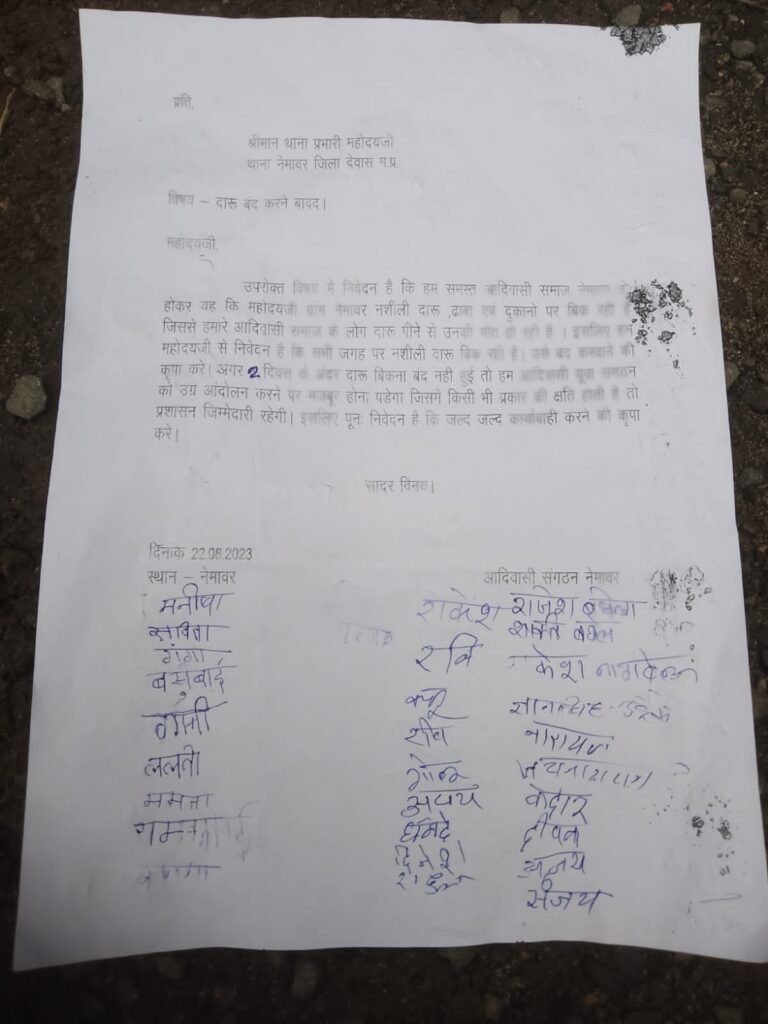 प्रति,
श्रीमान थाना प्रभारी महोदयजी
थाना नेमावर जिला देवास म.प्र.
विषय – दारू बंद करने बावद।
महोदयजी,
उपरोक्त विषय में निवेदन है कि हम समस्त आदिवासी समाज नेमावर
होकर यह कि महोदयजी ग्राम नेमावर नशीली दारू ,ढाबा एवं दुकानो पर बिक रही है
जिससे हमारे आदिवासी समाज के लोग दारू पीने से उनकी मोत हो रही है । इसलिए हम
महोदयजी से निवेदन है कि सभी जगह पर नशीली दारू बिक रही है। उसे बंद करवाने की
कृपा करे। अगर 2 दिवस के अंदर दारू बिकना बंद नही हुई तो हम आदिवासी युवा संगठन
को उग्र आंदोलन करने पर मजबूर होना पडेगा जिसमें किसी भी प्रकार की क्षति होती है तो
प्रशासन जिम्मेदारी रहेगी। इसलिए पूनः निवेदन है कि जल्द जल्द कार्यावाही करने की कृपा
करे।
सादर विनय।
दिनाक 22.08.2023
स्थान – नेमावर आदिवासी संगठन नेमावर
मनीषा राकेश राजेश
सविता
गंगा रवि
ललती शीव नारायण
ममता अजय केदार
दीपक
दिनेश
संजय